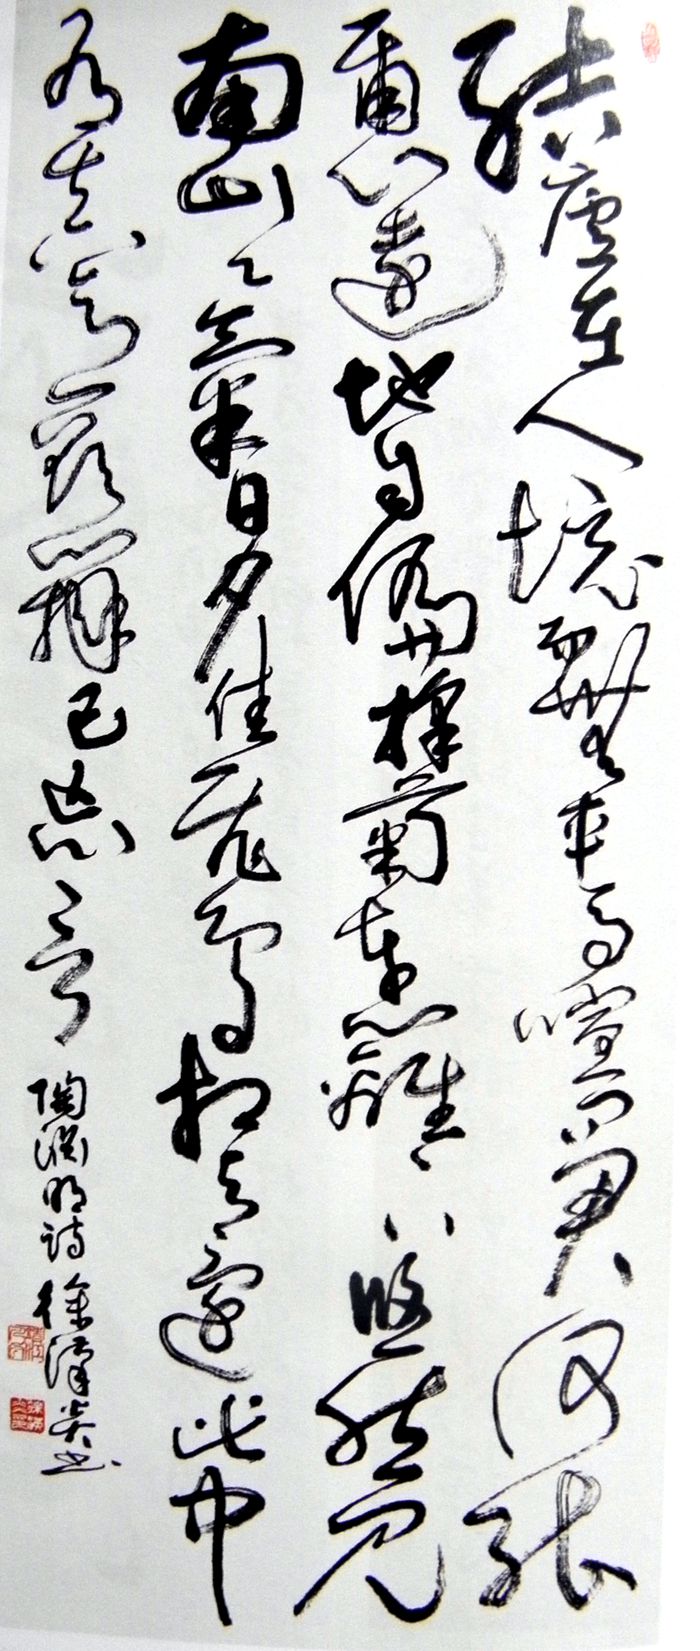 結廬在人境而無車馬喧問君何能
爾心遠地自偏採菊東籬下悠然見
南山々氣日夕佳飛鳥相與還此中
有真意欲辨已忘言 陶淵明詩 徐書